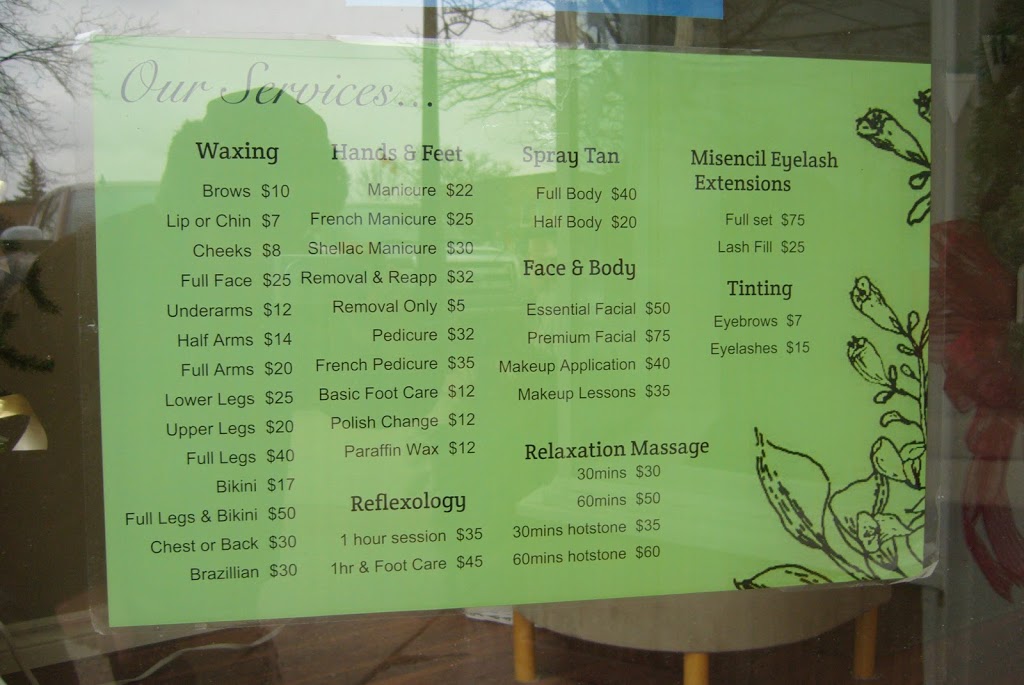 Our Services...
Waxing
Brows $10
Lip or Chin $7
Cheeks $8
Full Face $25
Underarms $12
Half Arms $14
Full Arms $20
Lower Legs $25
Upper Legs $20
Full Legs $40
Bikini $17
Full Legs & Bikini $50
Chest or Back $30
Brazillian $30
Hands & Feet
Manicure $22
French Manicure $25
Shellac Manicure $30
Removal & Reapp $32
Removal Only $5
Pedicure $32
French Pedicure $35
Basic Foot Care $12
Polish Change $12
Paraffin Wax $12
Reflexology
1 hour session $35
1hr & Foot Care $45
Spray Tan
Full Body $40
Half Body $20
Face & Body
Essential Facial $50
Premium Facial $75
Makeup Application $40
Makeup Lessons $35
Relaxation Massage
30mins $30
60mins $50
30mins hotstone $35
60mins hotstone $60
Misencil Eyelash
Extensions
Full set $75
Lash Fill $25
Tinting
Eyebrows $7
Eyelashes $15